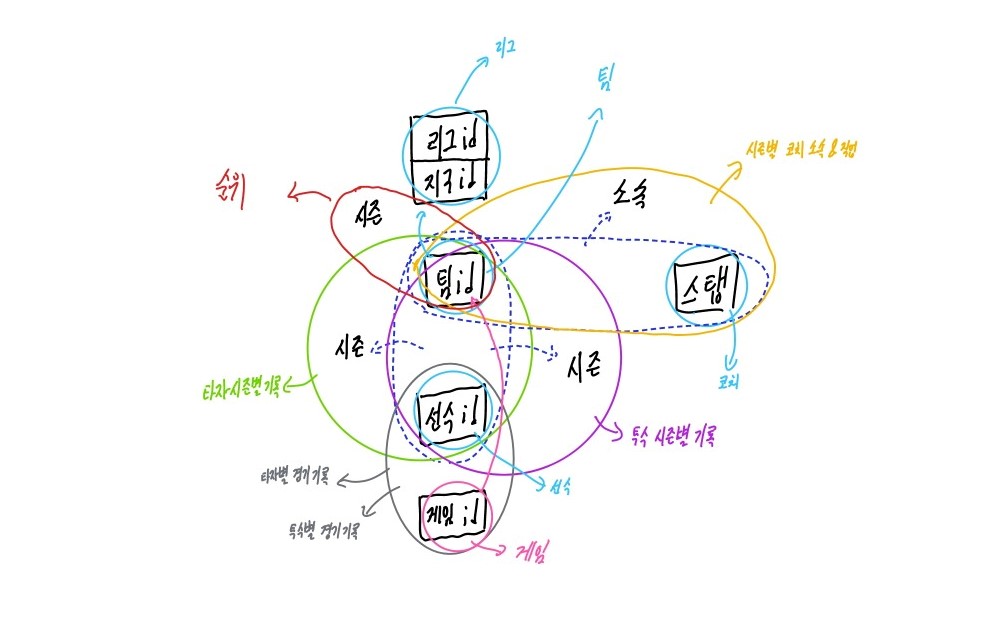 리그
팀
리그 id
지구 id
시즌별 코치 소속 & 직업
순위
시즌
소속
팀 id
스탭
시즌
시즌
타자시즌별기록
코치
선수 id
투수 시즌별 기록
타자별 경기기록
선수
게임 id
투수별 경기기록
게임